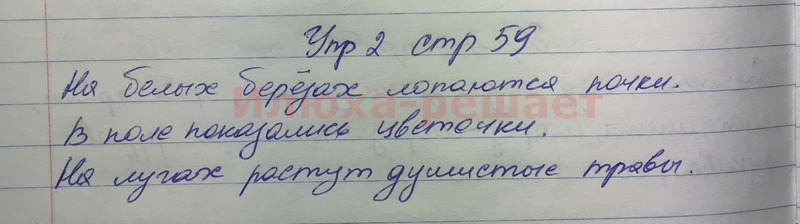 Упр 2 стр 59
На белых берёзах лопаются почки.
Илюха-решает
В поле показались цветочки.
На лугах растут душистые травы.